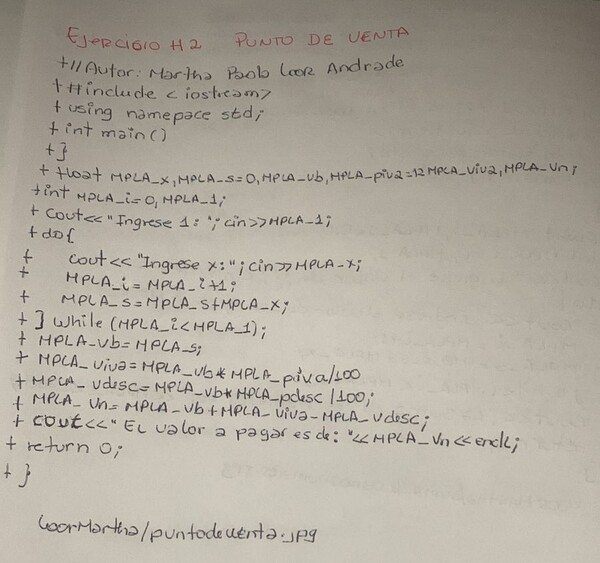 EJERCICIO H2 PUNTO DE VENTA
+//Autor: Martha Paola Loor Andrade
+ #include <iostream>
+ using namepace std;
+ int main()
+}
+ float MPLA_x, MPLA_s=0, MPLA_vb, MPLA_piva=12 MPLA_viva, MPLA_vn;
+int MPLA_i=0, MPLA_1;
+ Cout<<"Ingrese 1: "; cin>>MPLA_1;
+ do{
+ cout<< "Ingrese x:"; cin>>MPLA_x;
+ MPLA_i=MPLA_i+1;
+ MPLA_s=MPLA_s+MPLA_x;
+ } while (MPLA_i<MPLA_1);
+ MPLA_vb=MPLA_s;
+ MPLA_viva=MPLA_vb* MPLA_piva/100
+ MPLA_vdesc=MPLA_vb*MPLA_pdesc/100;
+ MPLA_vn=MPLA_vb+MPLA_viva-MPLA_vdesc;
+ cout<<"El valor a pagar es de: "<<MPLA_vn<<endl;
+ return 0;
+ }
LoorMartha/puntodeventa.jpg